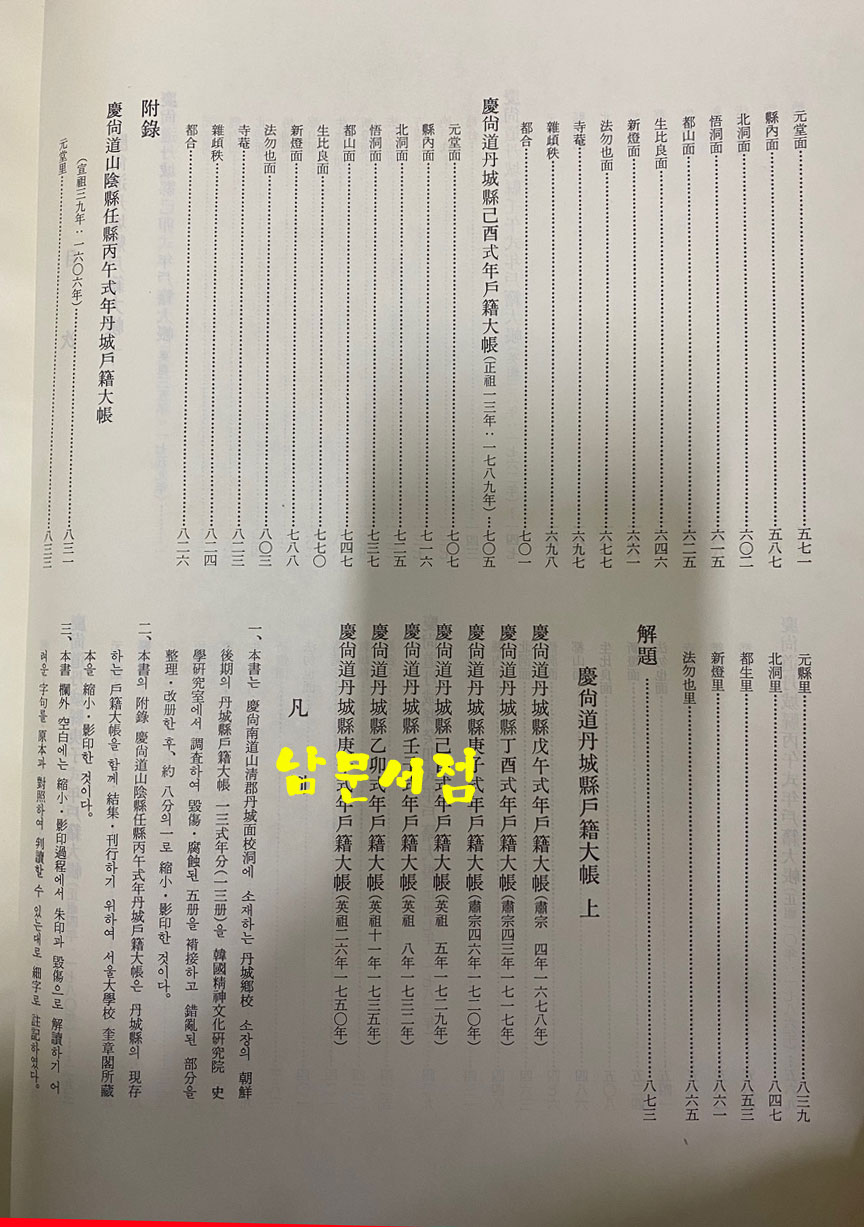 元堂面 五七一
縣內面 五八七
北洞面 六〇二
悟洞面 六一五
都山面 六二五
生比良面 六四六
新燈面 六六一
法勿也面 六七七
寺菴 六九七
雜頉秩 六九八
都合 七〇一
慶尙道丹城縣己酉式年戶籍大帳(正祖一三年:一七八九年) 七〇五
元堂面 七〇七
縣內面 七一六
北洞面 七二五
悟洞面 七三七
都山面 七四七
生比良面 七七〇
新燈面 七八八
法勿也面 八〇三
寺菴 八二三
雜頉秩 八二四
都合 八二六
附錄
慶尙道山陰縣任縣丙午式年丹城戶籍大帳
(宣祖三九年:一六〇六年) 八三一
元堂里 八三三
元縣里 八三九
北洞里 八四七
都生里 八五三
新燈里 八六一
法勿也里 八六五
解題 八七三
慶尙道丹城縣戶籍大帳 上
慶尙道丹城縣戊午式年戶籍大帳(肅宗 四年一六七八年)
慶尙道丹城縣丁酉式年戶籍大帳(肅宗四三年一七一七年)
慶尙道丹城縣庚子式年戶籍大帳(肅宗四六年一七二〇年)
慶尙道丹城縣己酉式年戶籍大帳(英祖 五年一七二九年)
慶尙道丹城縣壬子式年戶籍大帳(英祖 八年一七三二年)
慶尙道丹城縣乙卯式年戶籍大帳(英祖十一年一七三五年)
慶尙道丹城縣庚 式年戶籍大帳(英祖二六年一七五〇年)
凡
남문서점
一、本書는 慶尙南道山淸郡丹城面校洞에 소재하는 丹城鄕校 소장의 朝鮮
後期의 丹城縣戶籍大帳 一三式年分(一三册)을 韓國精神文化硏究院 史
學硏究室에서 調査하여 毁傷・腐蝕된 五册을 褙接하고 錯亂된 部分을
整理・改册한 후、約 八分의一로 縮小・影印한 것이다。
二、本書의 附錄 慶尙道山陰縣任縣丙午式年丹城戶籍大帳은 丹城縣의 現存
하는 戶籍大帳을 함께 結集・刊行하기 위하여 서울大學校 奎章閣所藏
本을 縮小・影印한 것이다。
三、本書 欄外 空白에는 縮小・影印過程에서 朱印과 毁傷으로 解讀하기 어
려운 字句를 原本과 對照하여 判讀할 수 있는대로 細字로 註記하였다。